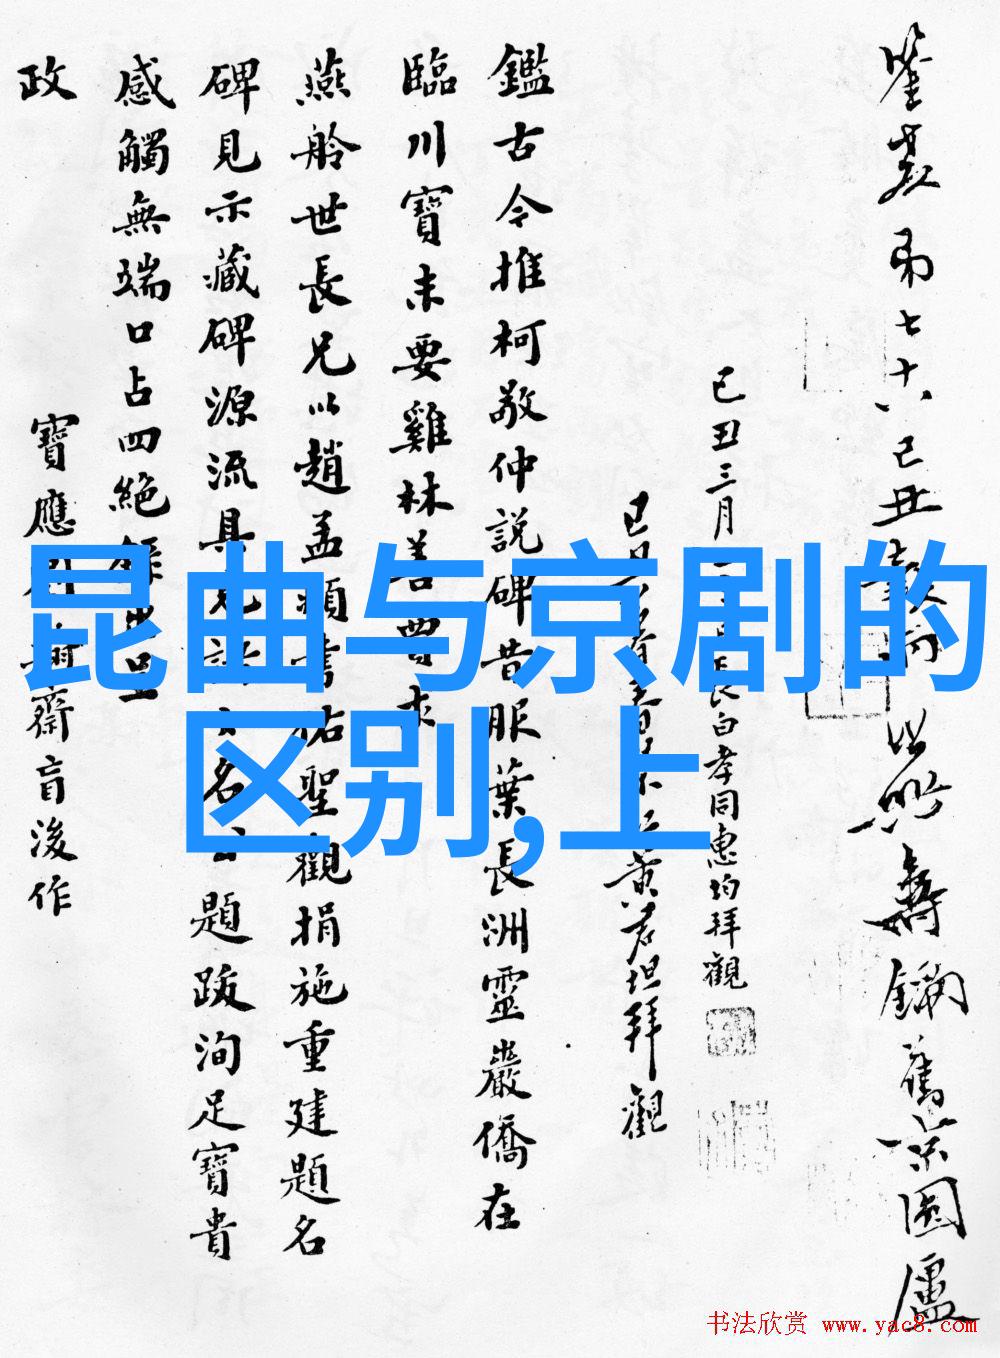 鑒袁弟七十八己丑
舊京園廬
己丑三月
長白孝同惠均拜觀
黃君坦拜觀
鑑古今推柯敬仲說碑昔服葉長洲靈巖僑在
臨川寶未要雞林善賈求
燕舲世長兄以趙孟頫書祐聖觀捐施重建題名
碑見示藏碑源流具見
名
題跋洵足寶貴
感觸無端口占四絕錄出呈
政
寶應
齋盲後作
昆曲与京剧的
区别,上
书法欣赏 www.yac8.com